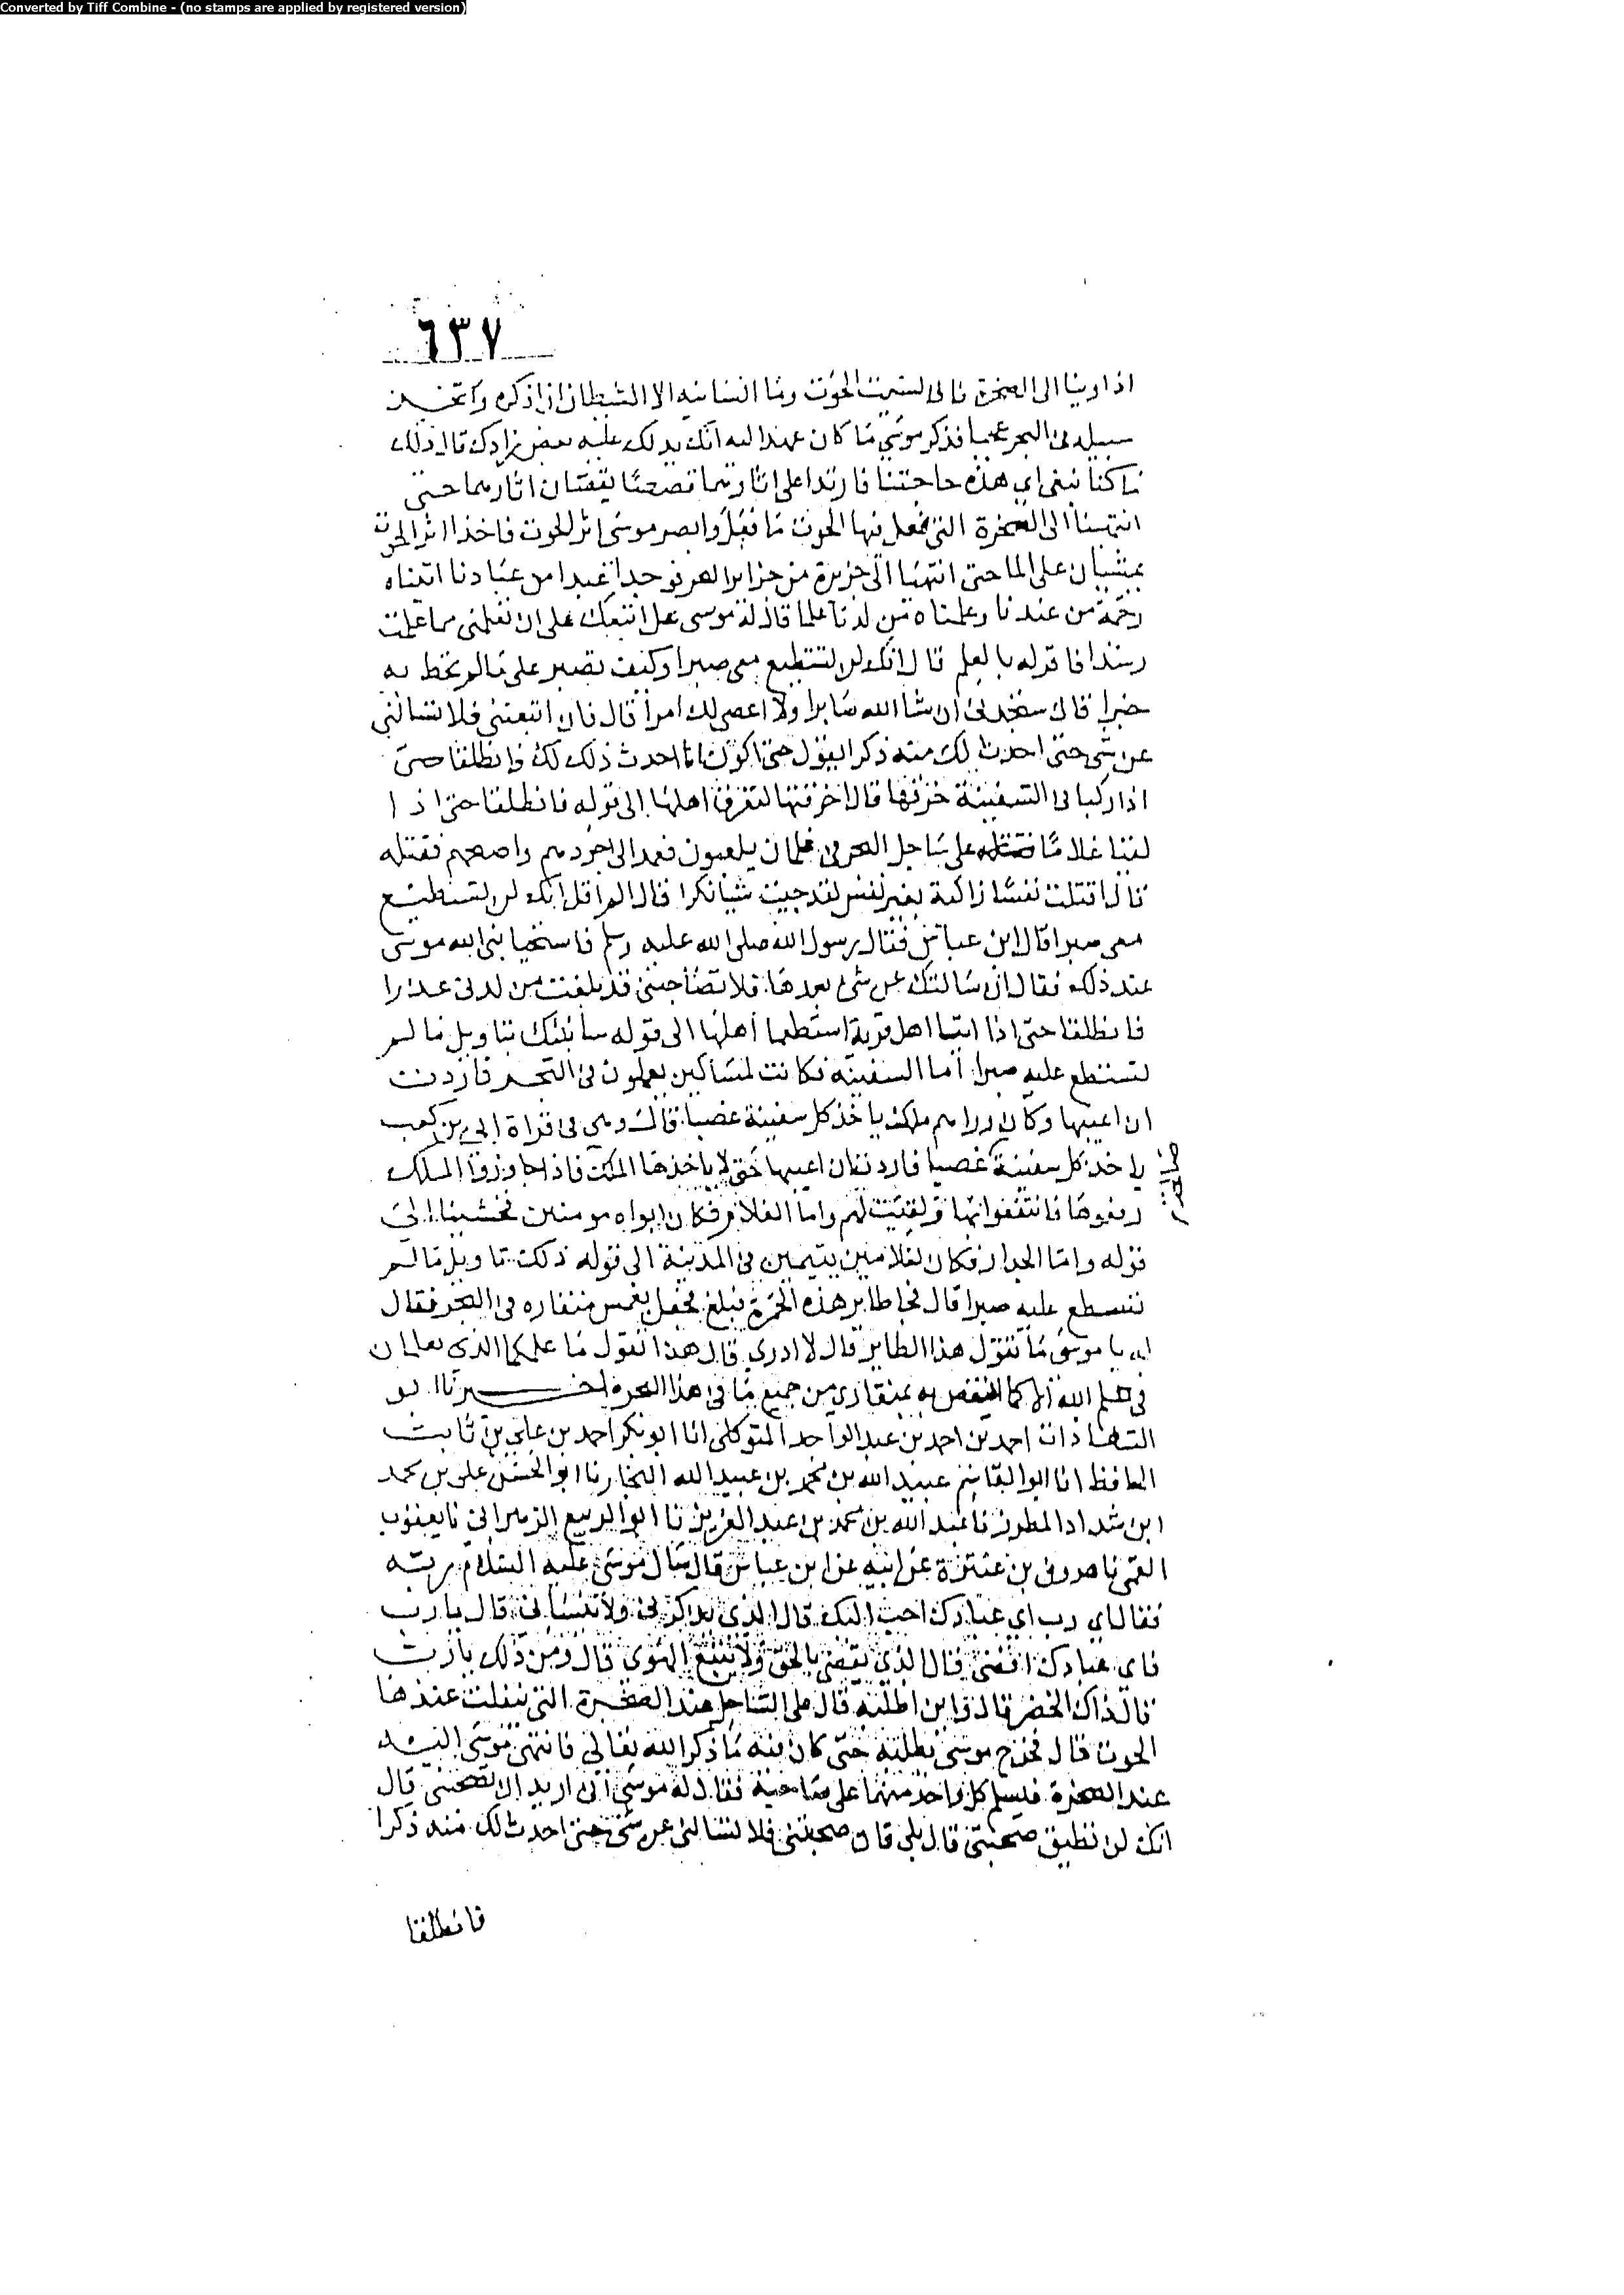 Converted by Tiff Combine - (no stamps are applied by registered version)
٦٣٧
اذ اوينا الى الصخرة فانى نسيت الحوت وما انسانيه الا الشيطان ان اذكره واتخذ
سبيله فى البحر عجبا فذكر موسى ما كان عهد اليه انك يدلك عليه بعض زادك قال ذلك
ما كنا نبغى اي هذه حاجتنا فارتدا على اثارهما قصصا يقصان اثارهما حتى
انتهينا الى الصخرة التى فعل فيها الحوت ما فعل وابصر موسى اثر الحوت فاخذا اثر الحوت
يمشيان على الما حتى انتهيا الى جزيرة من جزاير البحر فوجدا عبدا من عبادنا اتيناه
رحمة من عندنا وعلمناه من لدنا علما قال له موسى هل اتبعك على ان تعلمنى مما علمت
رشدا فاقر له بالعلم قال انك لن تستطيع معى صبرا وكيف تصبر على ما لم تحط به
خبرا قال ستجدنى ان شا الله صابرا ولا اعصى لك امرا قال فان اتبعتنى فلا تسالنى
عن شى حتى احدث لك منه ذكرا يقول حتى اكون انا احدث ذلك لك فانطلقا حتى
اذا ركبا فى السفينة خرقها قال اخرقتها لتغرق اهلها الى قوله فانطلقا حتى اذا
لقيا غلاما فقتله على ساحل البحر فى غلمان يلعبون فعمد الى اجودهم واصبحهم فقتله
قال اقتلت نفسا زاكية بغير نفس لقد جيت شيا نكرا قال الم اقل انك لن تستطيع
معى صبرا قال ابن عباس فقال رسول الله صلى الله عليه وسلم فاستحيا نبى الله موسى
عند ذلك فقال ان سالتك عن شى بعدها فلا تصاحبنى قد بلغت من لدنى عذرا
فانطلقا حتى اذا اتيا اهل قرية استطعما أهلها الى قوله سانبئك بتاويل ما لم
تستطع عليه صبرا أما السفينة فكانت لمساكين يعملون فى البحر فاردت
ان اعيبها وكان وراهم ملك ياخذ كل سفينة غصبا قال وهى فى قراة ابي بن كعب
ياخذ كل سفينة غصبا فاردت ان اعيبها حتى لا ياخذها الملك فاذا جاوزوا الملك
رقعوها فانتفعوا بها وبقيت لهم واما الغلام فكان ابواه مومنين فخشينا الى
قوله واما الجدار فكان لغلامين يتيمين فى المدينة الى قوله ذلك تاويل ما لم
تسطع عليه صبرا قال فجا طاير هذه الحمرة فبلغ فجعل يغمس منقاره فى البحر فقال
له يا موسى ما يقول هذا الطاير قال لا ادرى قال هذا يقول ما علمكما الذى تعلمان
فى علم الله الا كما انقص به بمنقارى من جميع ما فى هذا البحر اخبرنا ابو
السعادات احمد بن احمد بن عبد الواحد المتوكلى انا ابو بكر احمد بن على بن ثابت
الحافظ انا ابو القاسم عبيد الله بن محمد بن عبيد الله النجار نا ابو الحسن على بن محمد
ابن شداد المطرز نا عبد الله بن محمد بن عبد العزيز نا ابو الربيع الزهرانى نا يعقوب
القمى نا هرون بن عنترة عن ابيه عن ابن عباس قال سال موسى عليه السلام ربه
فقال اي رب اي عبادك احب اليك قال الذى يذكرنى ولا ينسانى قال يا رب
فاى عبادك اقضى قال الذى يقضى بالحق ولا يتبع الهوى قال ومن ذلك يا رب
قال ذاك الخضر قال واين اطلبه قال على الساحل عند الصخرة التى ينفلت عندها
الحوت قال فخرج موسى يطلبه حتى كان منه ما ذكر الله تعالى فانتهى موسى اليه
عند الصخرة فسلم كل واحد منهما على صاحبه فقال له موسى انى اريد ان تصحبنى قال
انك لن تطيق صحبتى قال بلى قال فان صحبتنى فلا تسالنى عن شى حتى احدث لك منه ذكرا
فانطلقا